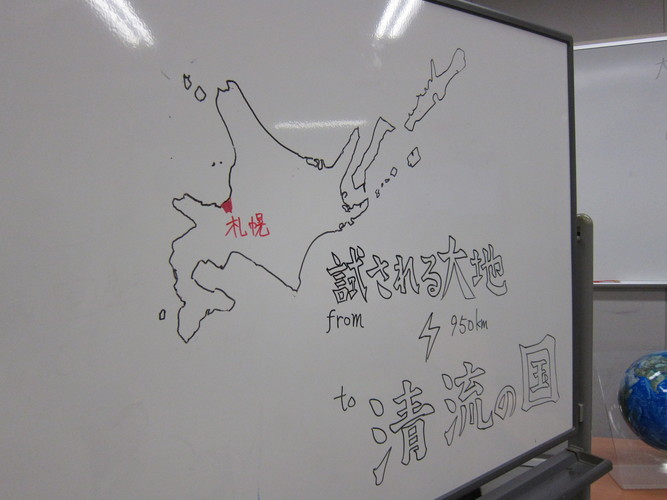 札幌
試される大地
from
950km
to 清流の国